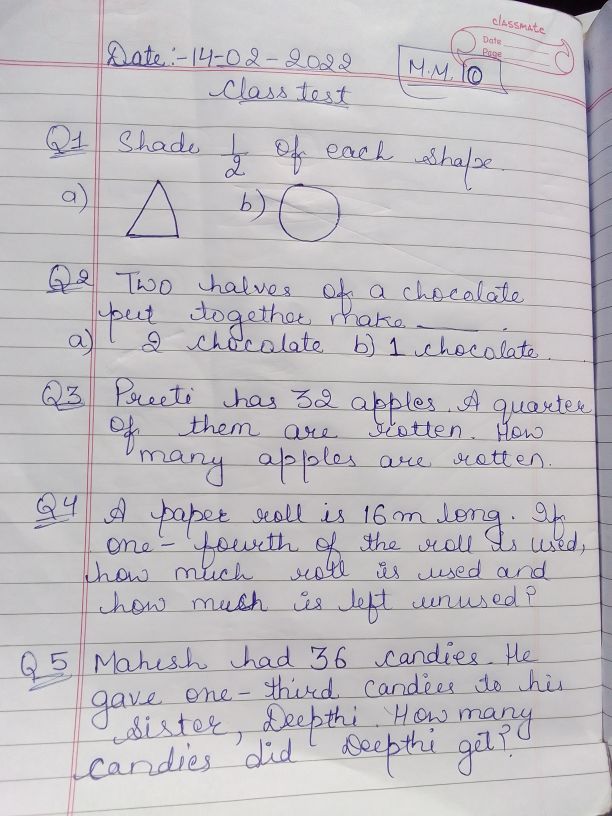 classmate
Date
Page
Date:-14-02-2022
M.M. 10
Class test
Q1 Shade 1/2 of each shape.
a) b)
Q2 Two halves of a chocolate
put together make ____.
a) 2 chocolate b) 1 chocolate.
Q3 Preeti has 32 apples. A quarter
of them are rotten. How
many apples are rotten.
Q4 A paper roll is 16m long. If
one-fourth of the roll is used,
how much roll is used and
how much is left unused?
Q5 Mahesh had 36 candies. He
gave one-third candies to his
sister, Deepthi. How many
candies did Deepthi get?